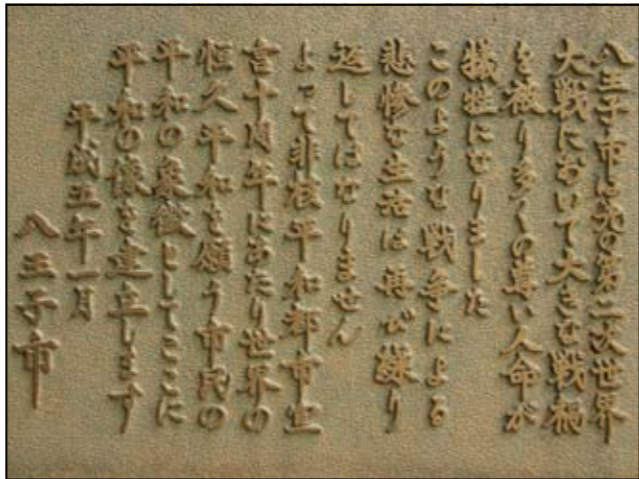 八王子市は先の第二次世界
大戦において大きな戦禍
を被り多くの尊い人命が
犠牲になりました
このような戦争による
悲惨な生活は再び繰り
返してはなりません
よって非核平和都市宣
言十周年にあたり世界の
恒久平和を願う市民の
平和の象徴としてここに
平和の像を建立します
平成五年一月
八王子市